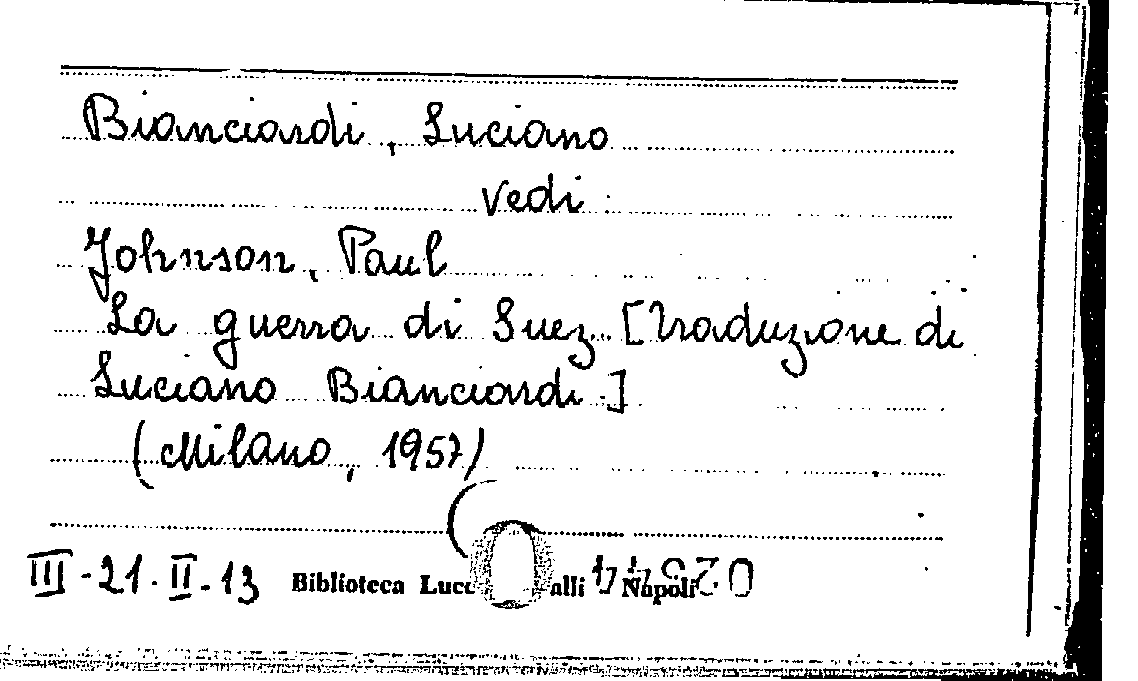 Bianciardi, Luciano
vedi:
Johnson, Paul
La guerra di Suez. [Traduzione di
Luciano Bianciardi.]
(Milano, 1957)
III-21.II-13 Biblioteca Lucc alli Napoli